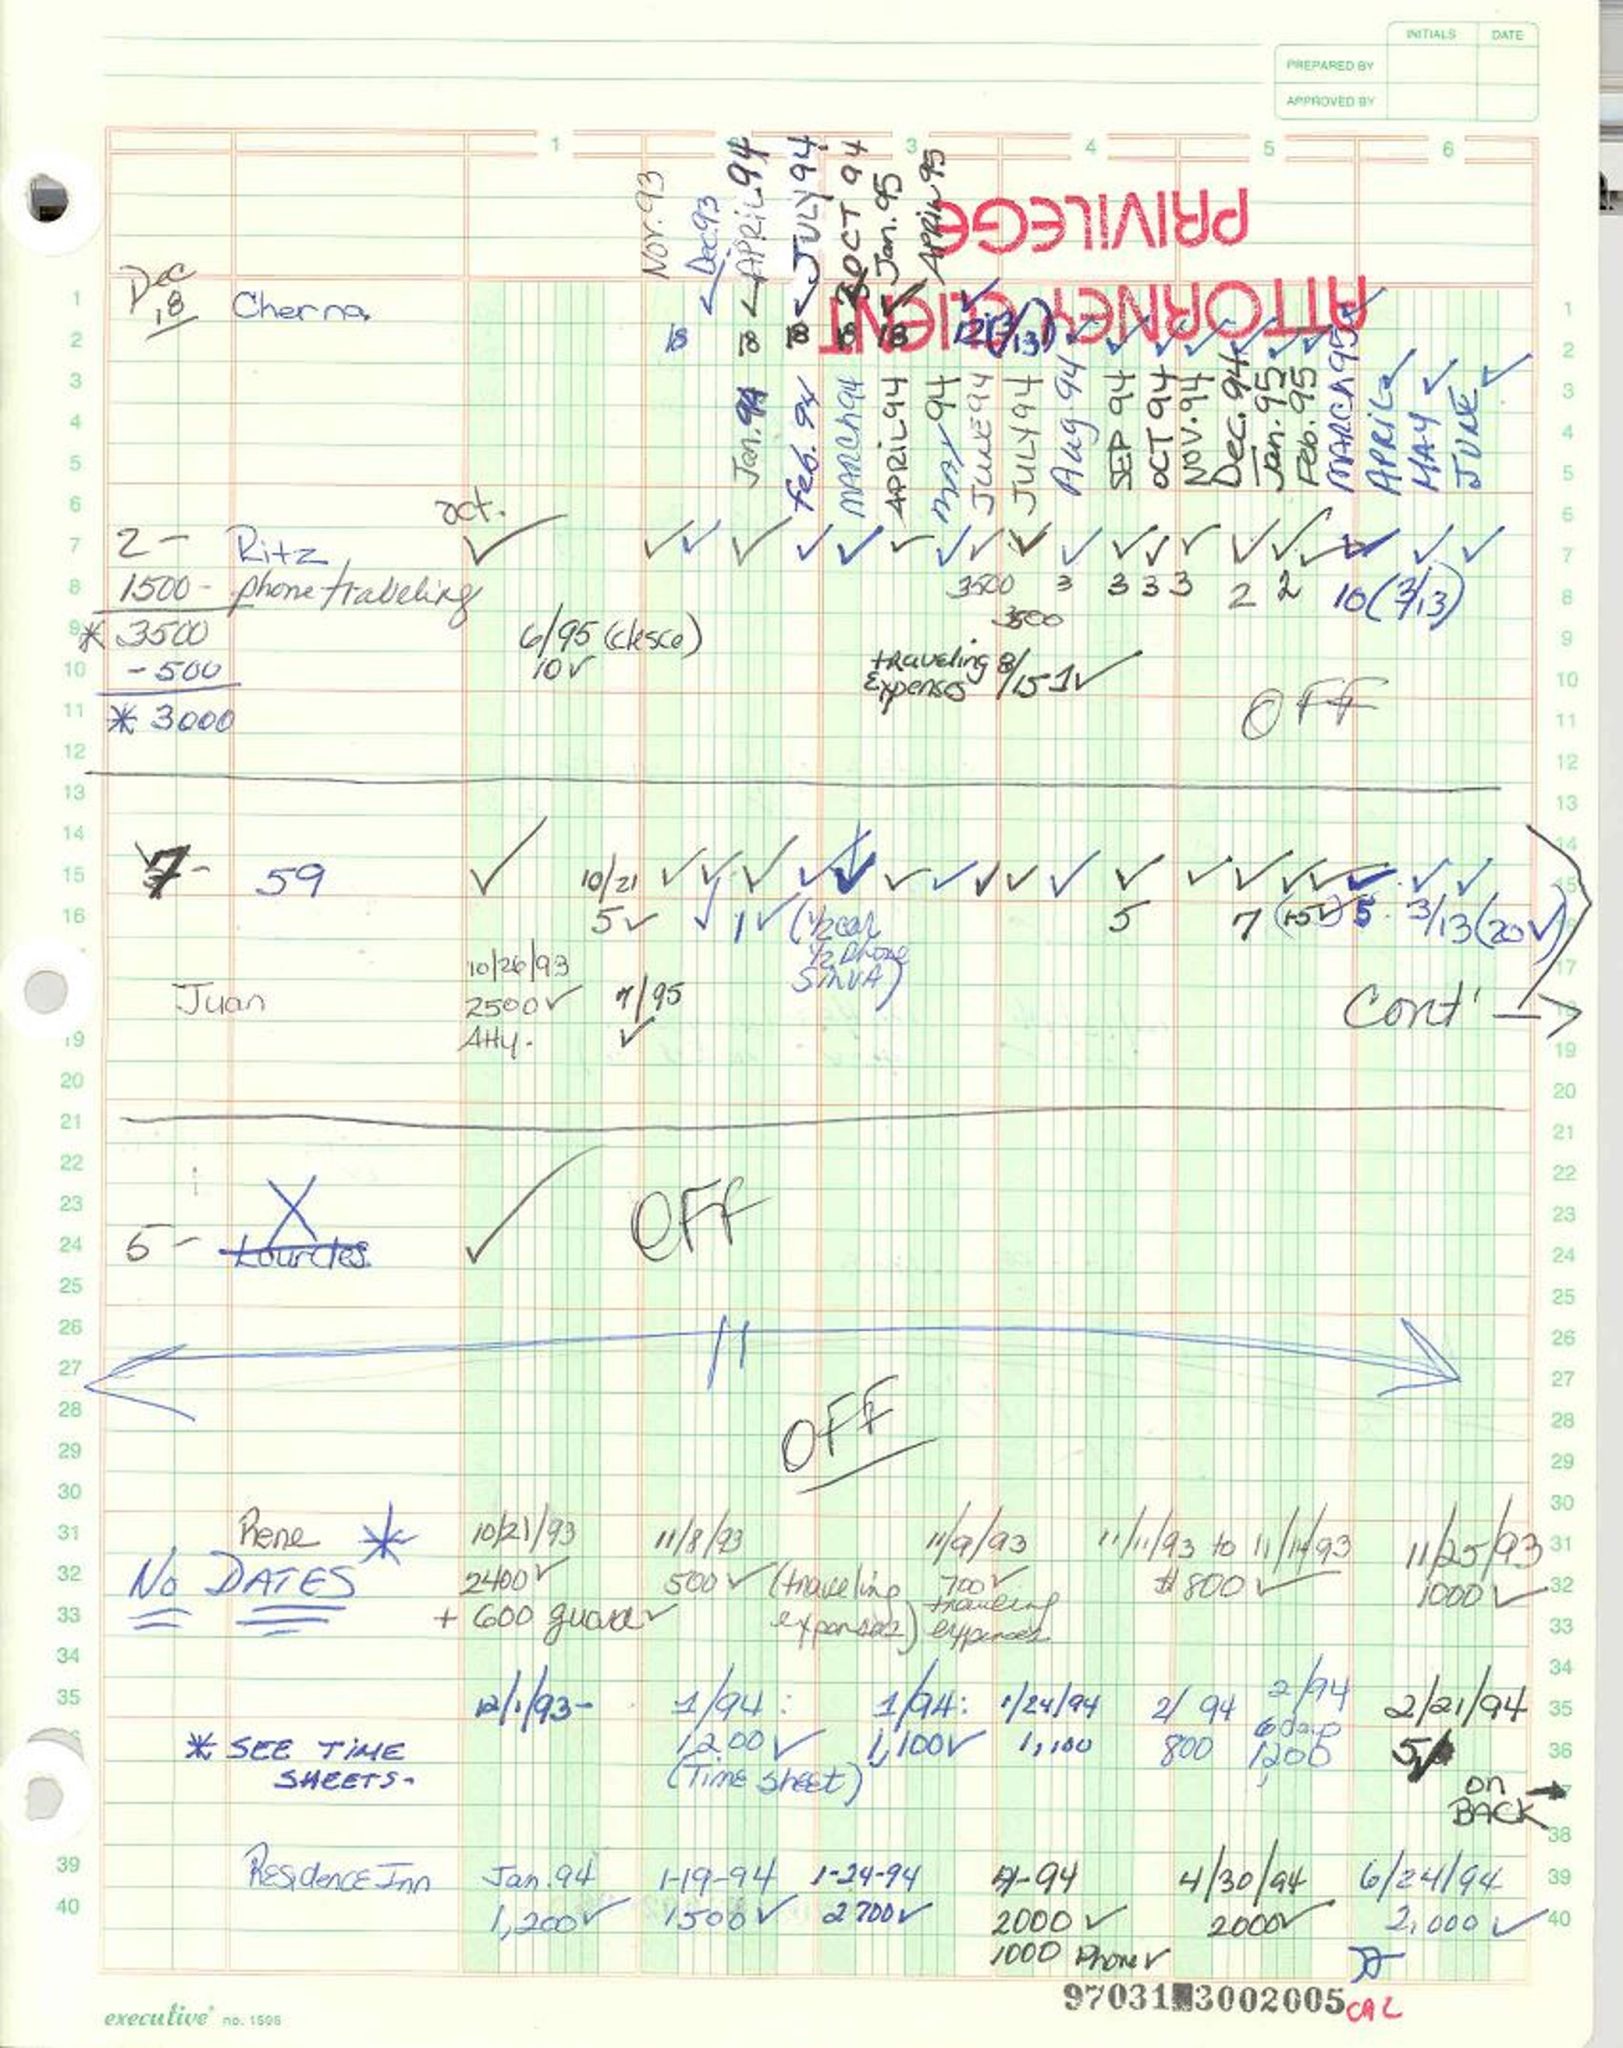 INITIALS DATE
PREPARED BY
APPROVED BY
1 3 4 5 6
Nov. 93
Dec 93
APRIL 94
JULY 94
OCT 94
Jan. 95
APRIL 95
ATTORNEY CLIENT
PRIVILEGE
Dec
18 Cherna
18 18 18 18 18
Jan. 94
Feb. 94
MARCH 94
APRIL 94
May 94
JUNE 94
JULY 94
Aug 94
SEP 94
OCT 94
NOV. 94
Dec. 94
Jan. 95
Feb. 95
MARCH 95
APRIL
MAY
JUNE
oct.
2 - Ritz ✓ ✓ ✓ ✓ ✓ ✓ ✓ ✓ ✓ ✓ ✓ ✓ ✓ ✓ ✓ ✓ ✓ ✓ ✓
1500 - phone traveling 3500 3 3 3 3 2 2 10 (3/13)
3500
* 3500 6/95
- 500 10 ✓ traveling expenses 8/15 1 ✓
* 3000 OFF
7 - 59 ✓ 10/21 ✓ ✓ ✓ ✓ ✓ ✓ ✓ ✓ ✓ ✓ ✓ ✓ ✓ ✓ ✓ ✓ ✓
5 ✓ ✓ 1 ✓ (1/2 car 5 7 5 3/13 (20 ✓)
1/2 phone
10/26/93
Juan 2500 ✓ 7/95 Cont'
Atty. ✓
5 - Lourdes ✓ OFF
OFF
Rene * 10/21/93 11/8/93 11/9/93 11/11/93 to 11/14/93 11/25/93
NO DATES 2400 ✓ 500 ✓ (traveling expenses) 700 ✓ traveling expences $800 ✓ 1000 ✓
+ 600 ✓
12/1/93- 1/94: 1/94: 1/24/94 2/94 2/94 2/21/94
* SEE TIME 1,200 ✓ 1,100 ✓ 1,100 800 6 days 1200 5 ✓
SHEETS. (Time Sheet)
on BACK →
Residence Inn Jan. 94 1-19-94 1-24-94 4/30/94 6/24/94
1,200 ✓ 1500 ✓ 2700 ✓ 2000 ✓ 2000 ✓ 2,000 ✓
1000 Phone ✓
97031 3002005 CAL
executive no. 1506